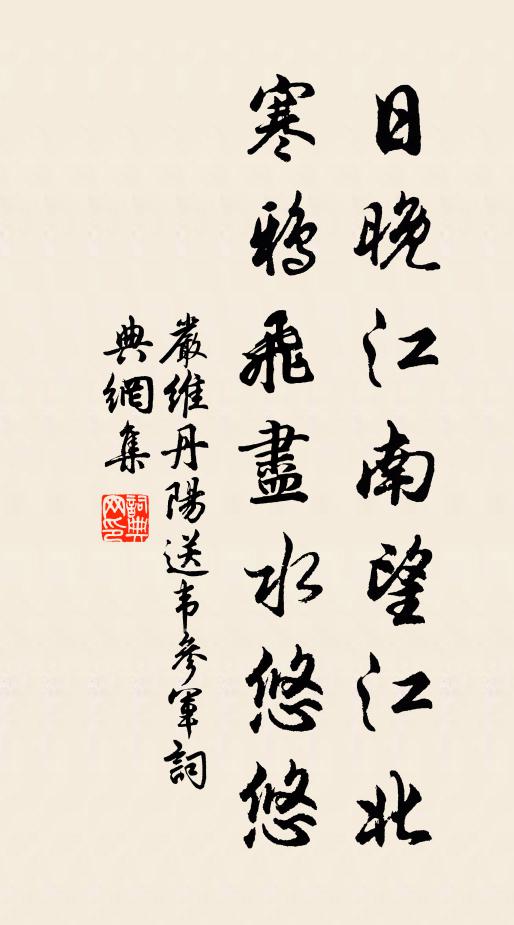 日晚江南望江北
寒鸦飛盡水悠悠
嚴維丹陽送韦參軍詞
典網集
詞典網印